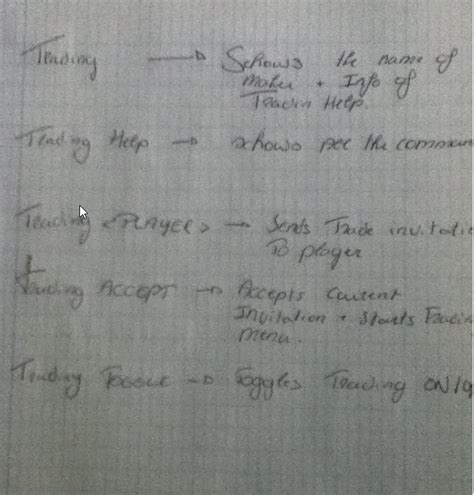 Trading → Schows the name of
Maker + Info of
Tradin Help.
Trading Help → schows per the comman
Trading <PLAYER> → Sends Trade invitatio
To player
Trading ACCEPT → Accepts Current
Invitation + Starts Tradin
menu.
Trading TOGGLE → Toggles Trading ON/O